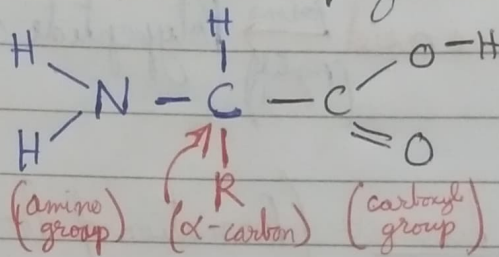 H
H
O-H
N - C - C
H
O
R
(amino group)
(α-carbon)
(carboxyl group)